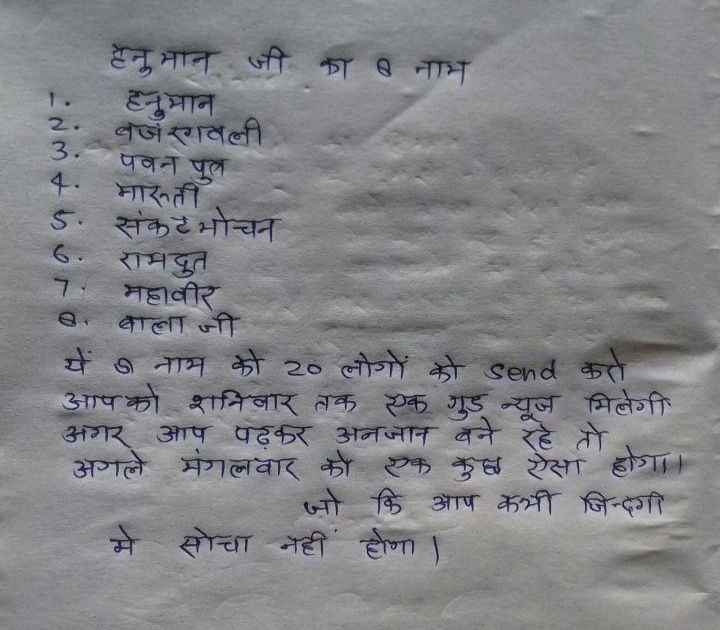 हनुमान जी का 8 नाम
1. हनुमान
2. बजंरगबली
3. पवन पुत्र
4. मारुती
5. संकट मोचन
6. रामदुत
7. महावीर
8. बाला जी
यें 8 नाम को 20 लोगों को send करो
आपको शनिवार तक एक गुड न्यूज मिलेगी
अगर आप पढ़कर अनजान बने रहे तो
अगले मंगलवार को एक कुछ ऐसा होगा।
जो कि आप कभी जिन्दगी
मे सोचा नहीं होगा।